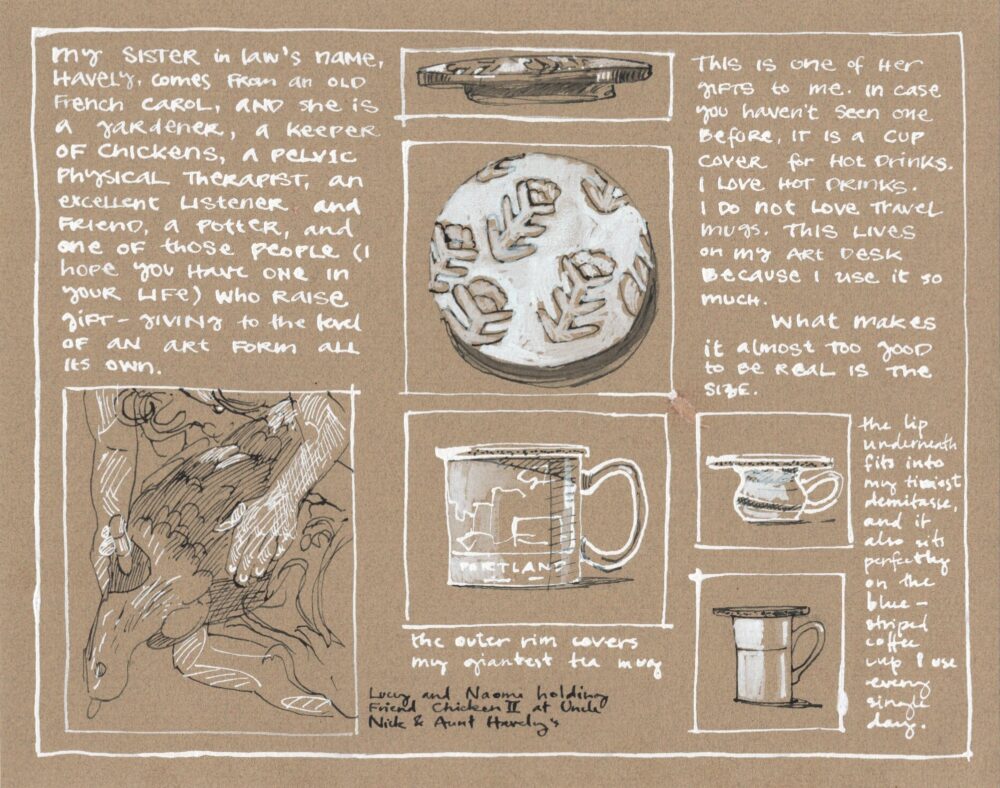 my SISTER in law's name,
Havely, comes from an OLD
French CAROL, AND she is
a gardener, a keeper
of chickens, a pelvic
physical therapist, an
excellent listener and
friend, a potter, and
one of those people (I
hope you have one in
your life) who raise
gift-giving to the level
of an art form all
its own.
the outer rim covers
my giantest tea mug
PORTLAND
Lucy and Naomi holding
Friend Chicken II at Uncle
Nick & Aunt Havely's
This is one of her
gifts to me. In case
you haven't seen one
before, it is a cup
cover for hot drinks.
I love hot drinks.
I do not love travel
mugs. This lives
on my art desk
because I use it so
much.
What makes
it almost too good
to be real is the
size.
the lip
underneath
fits into
my tiniest
demitasse,
and it
also sits
perfectly
on the
blue-
striped
coffee
cup I use
every
single
day.